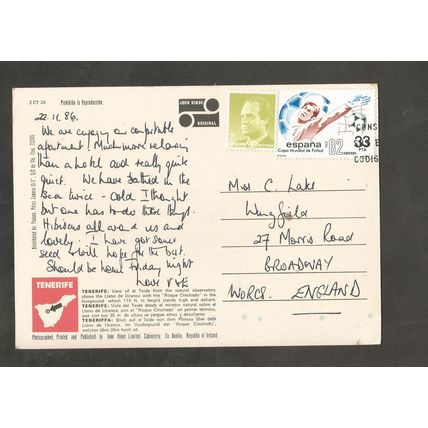 2 CT 26
Prohibida la Reproduccion.
JOHN HINDE
ORIGINAL
22.11.86.
We are enjoying our comfortable
apartment. Much more relaxing
than a hotel and really quite
quiet. We have bathed in the
sea twice - cold I thought
but one has to do these things.
Hibiscus all around us and
lovely. I have got some
seed & will hope for the best.
Should be home Friday night
Love
españa
82
Copa Mundial de Fútbol
CORREOS
33
PTA
CONS
CODIS
Miss C. Lake
Wingfield
27 Morris Road
BROADWAY
WORCS. ENGLAND
TENERIFE
TENERIFE: View of el Teide from the natural observatory
above the Llano de Ucanca with the "Roque Cinchado" in the
foreground which 115 ft. in height stands high and defiant.
TENERIFE: Vista del Teide desde el mirador natural sobre el
Llano de Ucanca, con el "Roque Cinchado" en primer término,
que con sus 38 m. de altura se yergue altivo y desafiante.
TENERIFFA: Blick auf el Teide von dem Plateau über dem
Llano de Ucanca. Im Vordergrund der "Roque Cinchado",
welcher über 35m hoch ist.
Photographed, Printed and Published by John Hinde Limited, Cabinteely, Co. Dublin, Republic of Ireland